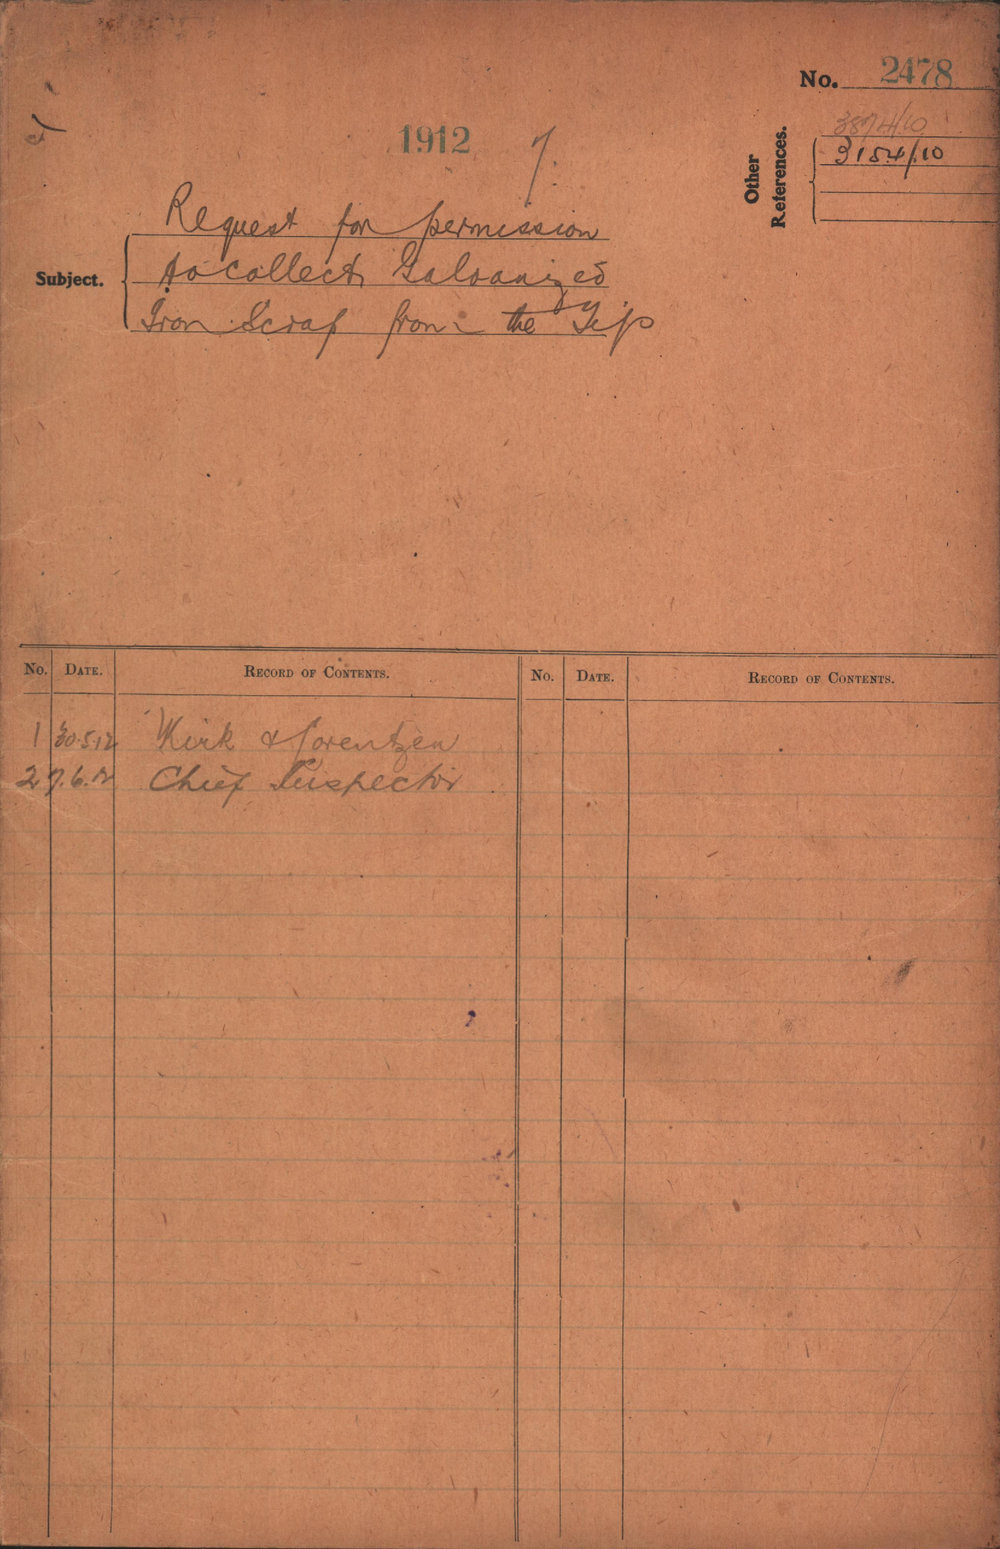 No. 2478
1912 7.
Other References.
3874/10
3154/10
Subject.
Request for permission
to collect Galvanized
Iron Scrap from the Tip
No. DATE. RECORD OF CONTENTS. No. DATE. RECORD OF CONTENTS.
1 30.5.12 Kirk & Lorentzen
2 7.6.12 Chief Inspector